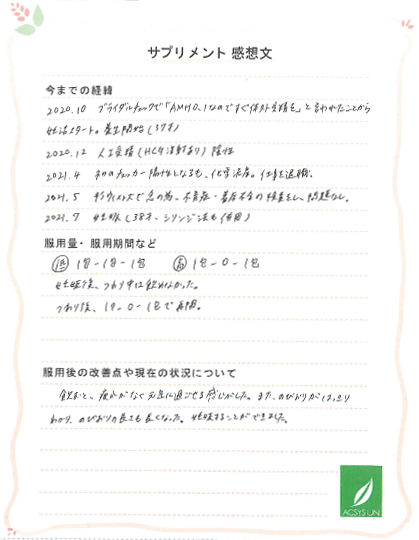 サプリメント 感想文
今までの経緯
2020.10 ブライダルチェックで「AMH0.1なのですぐ体外受精を」と言われたことから
妊活スタート。養生開始(37才)
2020.12 人工受精(HCG注射あり)陰性
2021.4 初のチェッカー陽性となるも、化学流産。仕事を退職。
2021.5 念の為、不育症・着床不全の検査をし、問題なし。
2021.7 妊娠(38才、シリンジ法も併用)
服用量・服用期間など
1包-1包-1包 1包-0-1包
妊娠後、つわり中は飲めなかった。
つわり後、1包-0-1包で再開。
服用後の改善点や現在の状況について
飲むと、疲れがなく元気に過ごせる感じがした。また、のびおりがはっきり
わかり、のびおりの長さも長くなった。妊娠することができました。
ACSYS UN